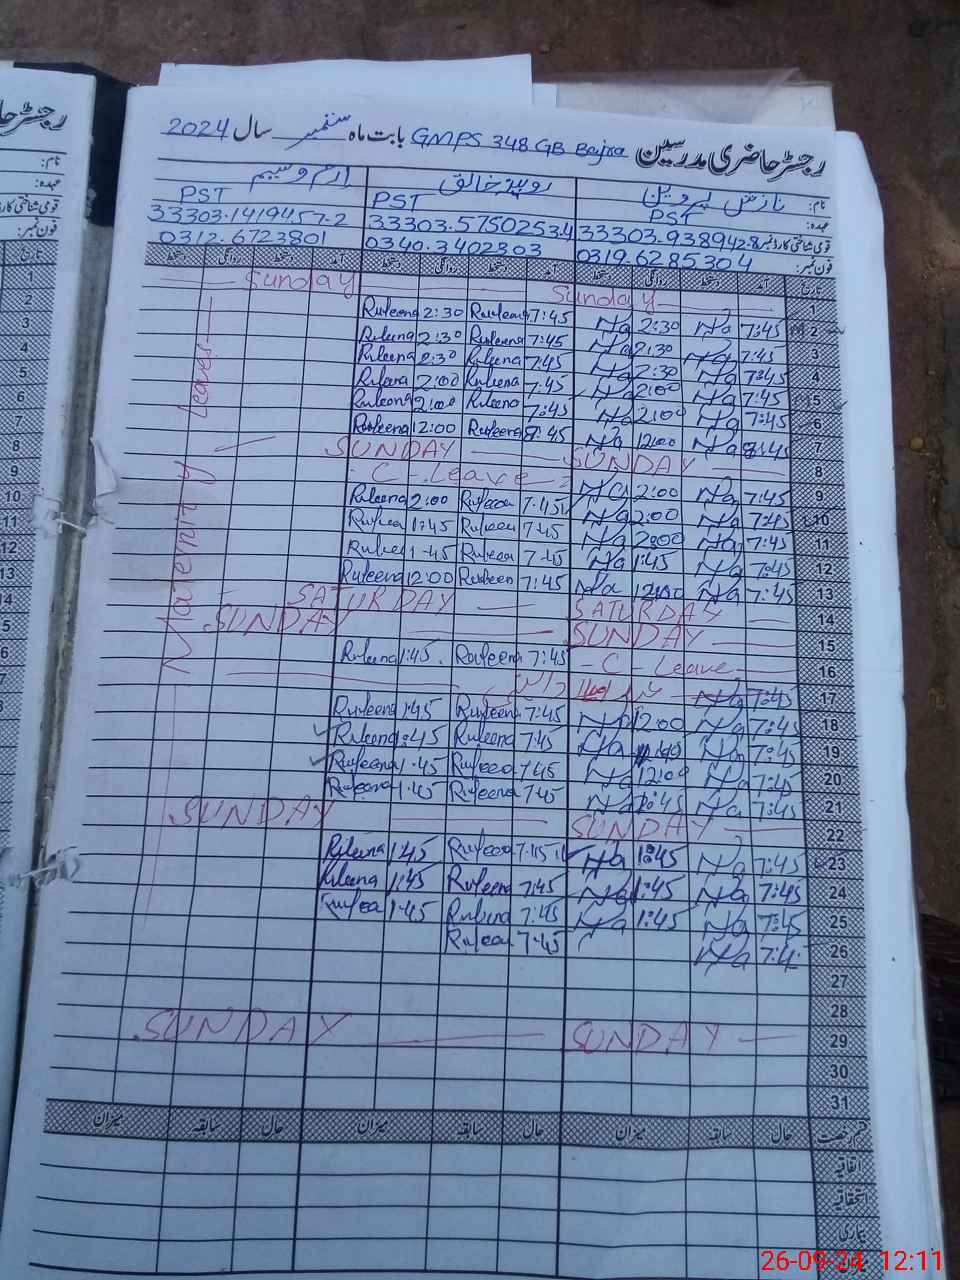 رجسٹر حاضری مدرسین GMPS 348 GB Bajra بابت ماہ ستمبر سال 2024
نام: نازش پروین روبینہ خالق ارم وسیم
عہدہ: PST PST PST
قومی شناختی کارڈ نمبر: 33303.9389428 33303.57502534 33303.1419457-2
فون نمبر: 0319.6285304 0340.3402303 0312.6723801
تاریخ آمد دستخط روانگی دستخط آمد دستخط روانگی دستخط آمد دستخط روانگی دستخط
1 Sunday Sunday
2 7:45 Na 2:30 Na 7:45 Rufeena 2:30 Rufeena
3 7:45 Na 2:30 Na 7:45 Rufeena 2:30 Rufeena
4 7:45 Na 2:30 Na 7:45 Rufeena 2:30 Rufeena
5 7:45 Na 2:00 Na 7:45 Rufeena 2:00 Rufeena
6 7:45 Na 2:00 Na 7:45 Rufeena 2:00 Rufeena
7 8:45 Na 12:00 Na 8:45 Rufeena 12:00 Rufeena
8 SUNDAY SUNDAY
9 7:45 Na 2:00 Na C. Leave
10 7:45 Na 2:00 Na 7:45 Rufeena 2:00 Rufeena
11 7:45 Na 2:00 Na 7:45 Rufeena 1:45 Rufeena
12 7:45 Na 1:45 Na 7:45 Rufeena 1:45 Rufeena
13 7:45 Na 12:00 Na 7:45 Rufeena 12:00 Rufeena
14 SATURDAY SATURDAY
15 SUNDAY SUNDAY
16 - C - Leave 7:45 Rufeena 1:45 Rufeena
17 7:45 Na
18 7:45 Na 12:00 Na 7:45 Rufeena 1:45 Rufeena
19 7:45 Na Na 7:45 Rufeena 1:45 Rufeena
20 7:45 Na 12:00 Na 7:45 Rufeena 1:45 Rufeena
21 7:45 Na Na 7:45 Rufeena 1:45 Rufeena
22 SUNDAY SUNDAY
23 7:45 Na 1:45 Na 7:45 Rufeena 1:45 Rufeena
24 7:45 Na 1:45 Na 7:45 Rufeena 1:45 Rufeena
25 7:45 Na 1:45 Na 7:45 Rufeena 1:45 Rufeena
26 7:4 Na 7:45 Rufeena
27
28
29 SUNDAY SUNDAY
30
31
Maternity Leaves
قسم رخصت حال سابقہ میزان حال سابقہ میزان حال سابقہ میزان
اتفاقیہ
استحقاقیہ
بیماری
رجسٹر حا
نام:
عہدہ:
قومی شناختی کارڈ
فون نمبر:
تاریخ
26-09-24 12:11